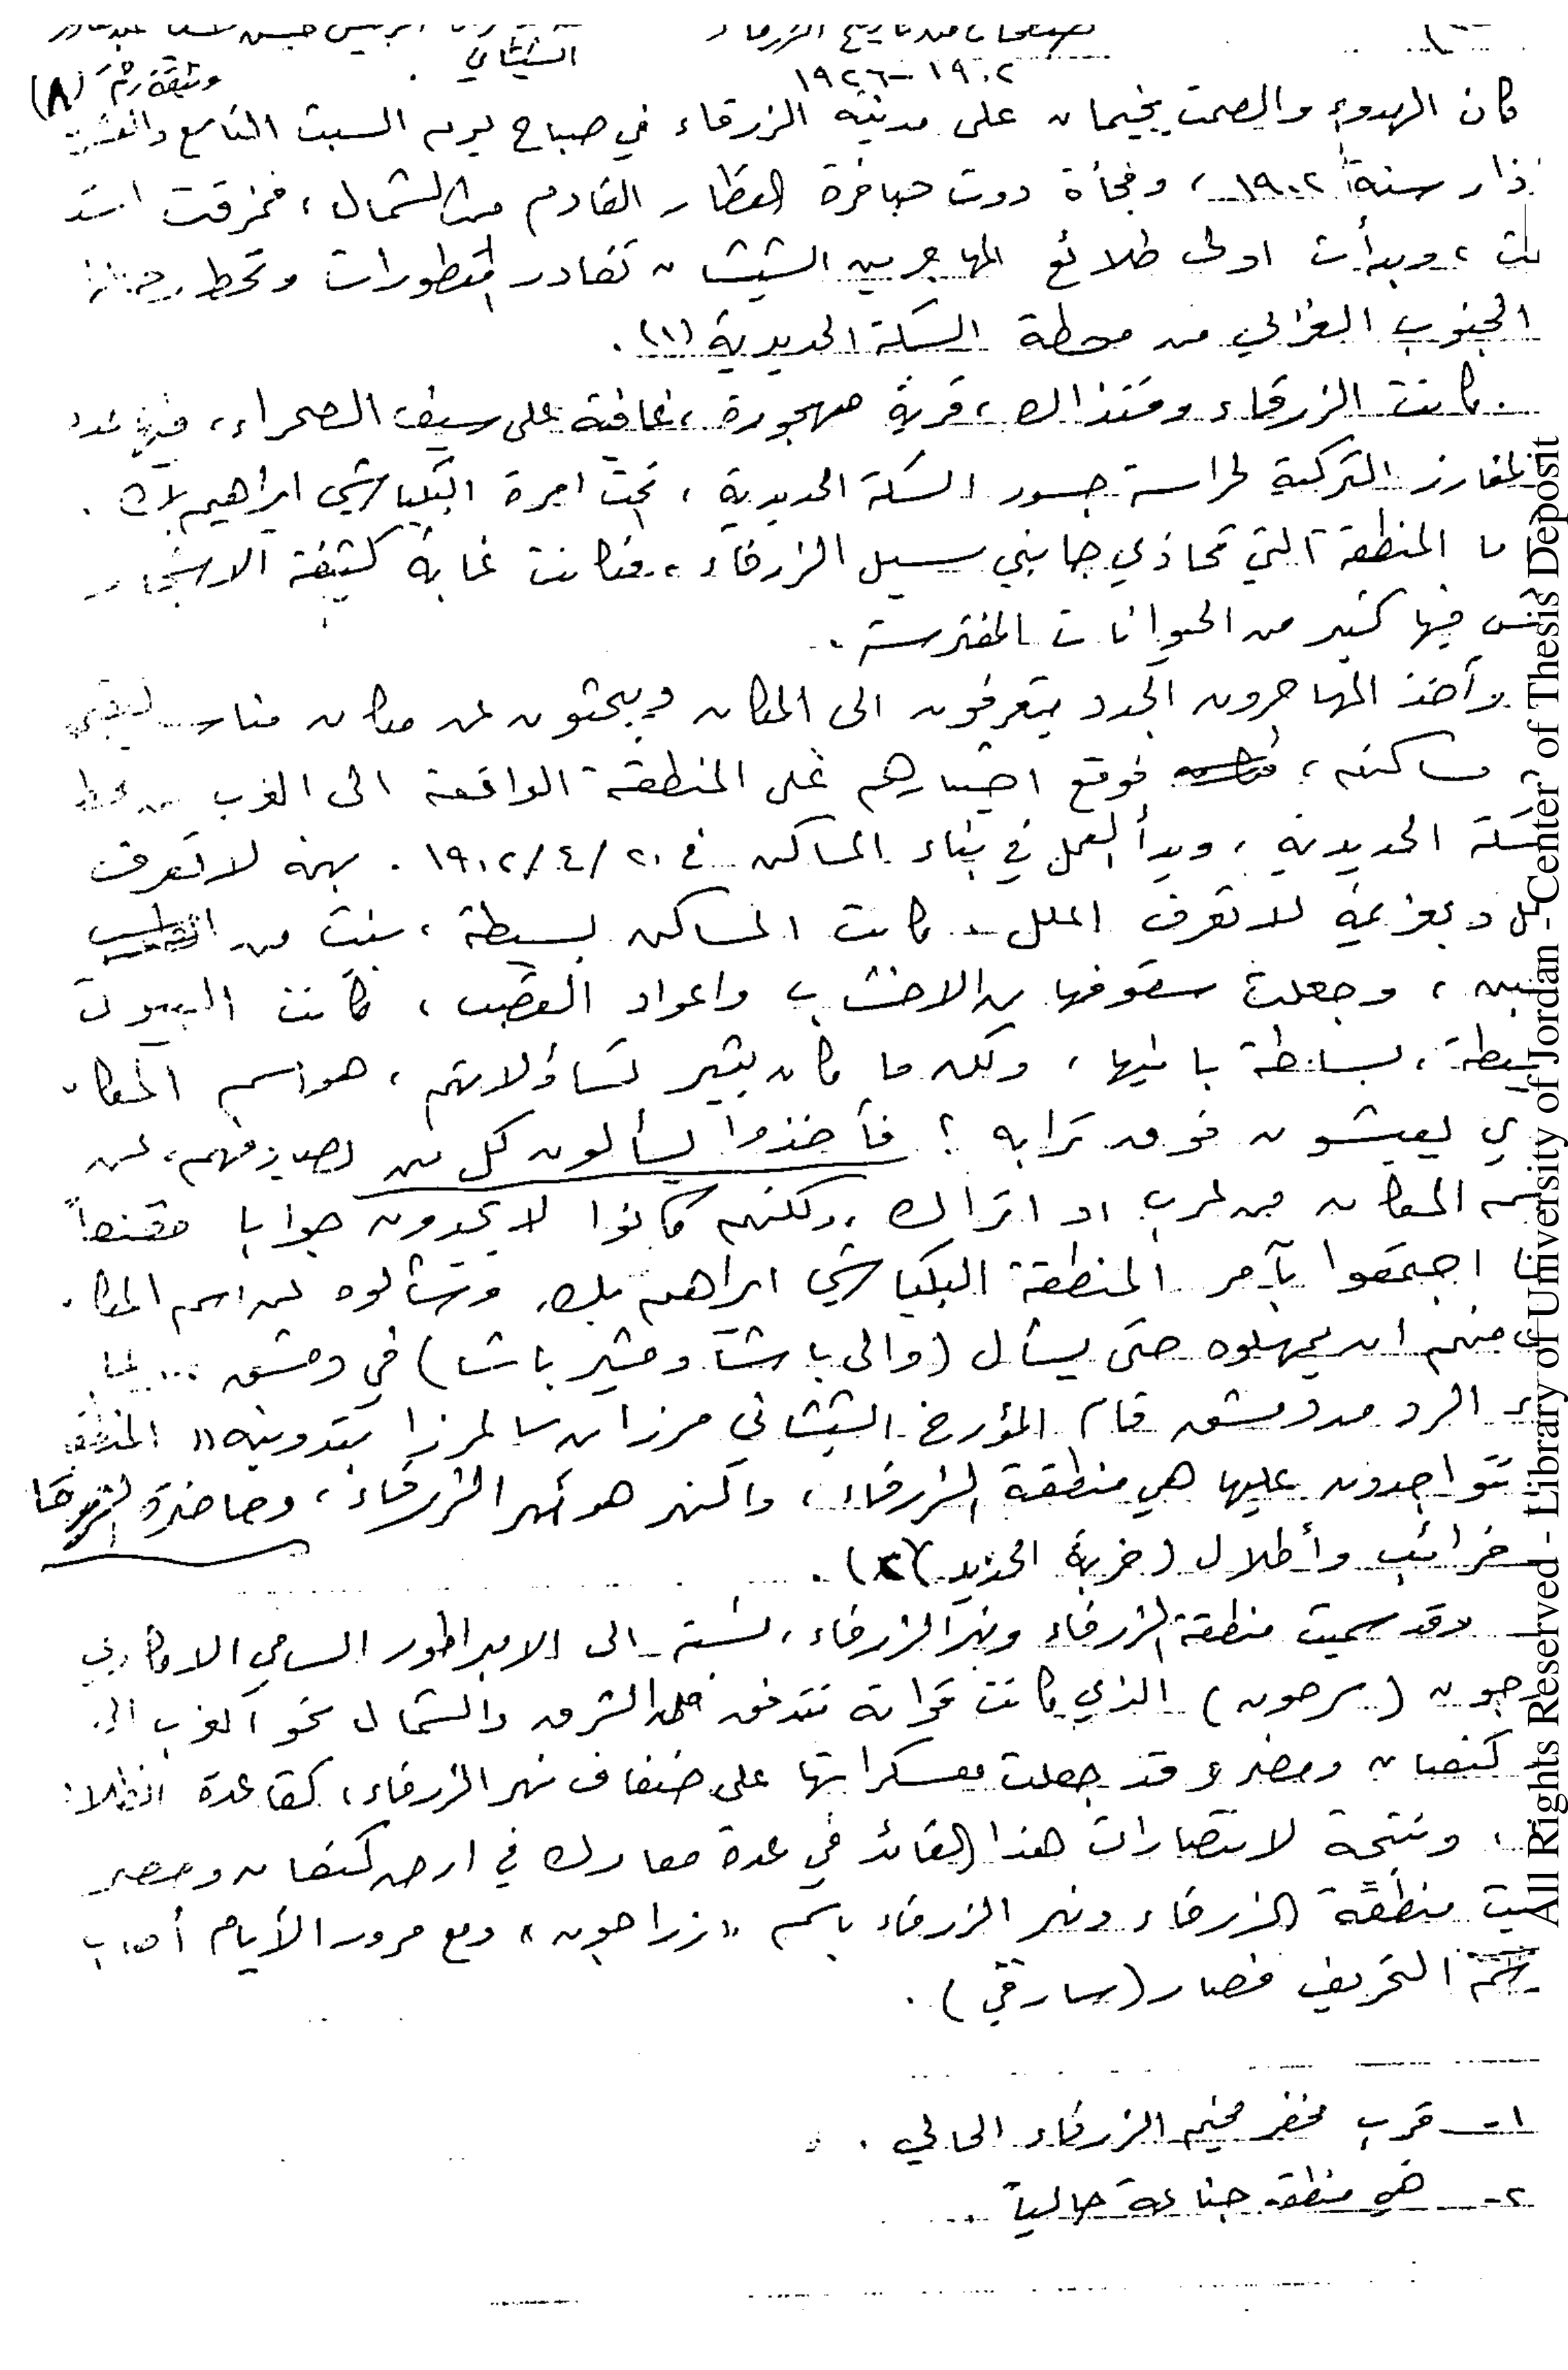 صفحات من تاريخ الزرقاء
الشيشاني
١٩٠٢-١٩٢٦
وثيقة رقم (٨)
كان الهدوء والصمت يخيمان على مدينة الزرقاء في صباح يوم السبت التاسع والعشرين
ذار سنة ١٩٠٢، وفجأة دوت صافرة القطار القادم من الشمال، فمزقت
ت، وبدأت اولى طلائع المهاجرين الشيشان تغادر المقطورات وتحط رحالها
الجنوب الغرابي من محطة السكة الحديدية (١).
كانت الزرقاء وقتذاك، قرية مهجورة، غافية على سيف الصحراء، فيها عدد
المفارز التركية لحراسة جسور السكة الحديدية، تحت امرة البكباشي ابراهيم بك.
ما المنطقة التي تحاذي جانبي سيل الزرقاء، فكانت غابة كثيفة الاشجار
فيها كثير من الحيوانات المفترسة.
وأخذ المهاجرون الجدد يتعرفون الى المكان ويبحثون عن مكان مناسب
مساكنه، فوقع اختيارهم على المنطقة الواقعة الى الغرب من محط
سكة الحديدية، وبدأ العمل في بناء المساكن في ٢٠/٤/١٩٠٢. بهمة لا تعرف
ل وبعزيمة لا تعرف الملل. كانت المساكن بسيطة، بنيت من
، وجعلت سقوفها من الاخشاب واعواد القصب، كانت البيوت
سيطة، بساطة بانيها، ولكن ما كان يثير تساؤلاتهم، هو اسم المكان
ي يعيشون فوق ترابه؟ فأخذوا يسألون كل من يصادفهم، عن
سم المكان من عرب او اتراك، ولكنهم كانوا لا يجدون جوابا مقنعاً
اجتمعوا بآمر المنطقة البكباشي ابراهيم بك، وسألوه عن اسم المكان
منهم ان يمهلوه حتى يسأل (والي باشا ومشير باشا) في دمشق ...
الرد من دمشق قام المؤرخ الشيشاني مرزا بن سالمرزا بتدوينه "المنطقة
تتواجدون عليها هي منطقة الزرقاء، والنهر هو نهر الزرقاء، وحاضرة الزرقا
خرائب وأطلال (خربة الحديد) (٢).
وقد سميت منطقة الزرقاء ونهر الزرقاء، نسبة الى الامبراطور السامي الاكادي
رجون (سرجون) الذي كانت قواته تتدفق من الشرق والشمال نحو الغرب الى
كنعان ومصر وقد جعلت معسكراتها على ضفاف نهر الزرقاء، كقاعدة انطلاق
، ونتيجة لانتصارات هذا القائد في عدة معارك في ارض كنعان ومصر
سميت منطقة الزرقاء ونهر الزرقاء باسم "زراجون" ومع مرور الأيام أصاب
التحريف فصار (سارقي).
١- قرب مخفر مخيم الزرقاء الحالي.
٢- هي منطقة جناعة حالياً
All Rights Reserved - Library of University of Jordan - Center of Thesis Deposit